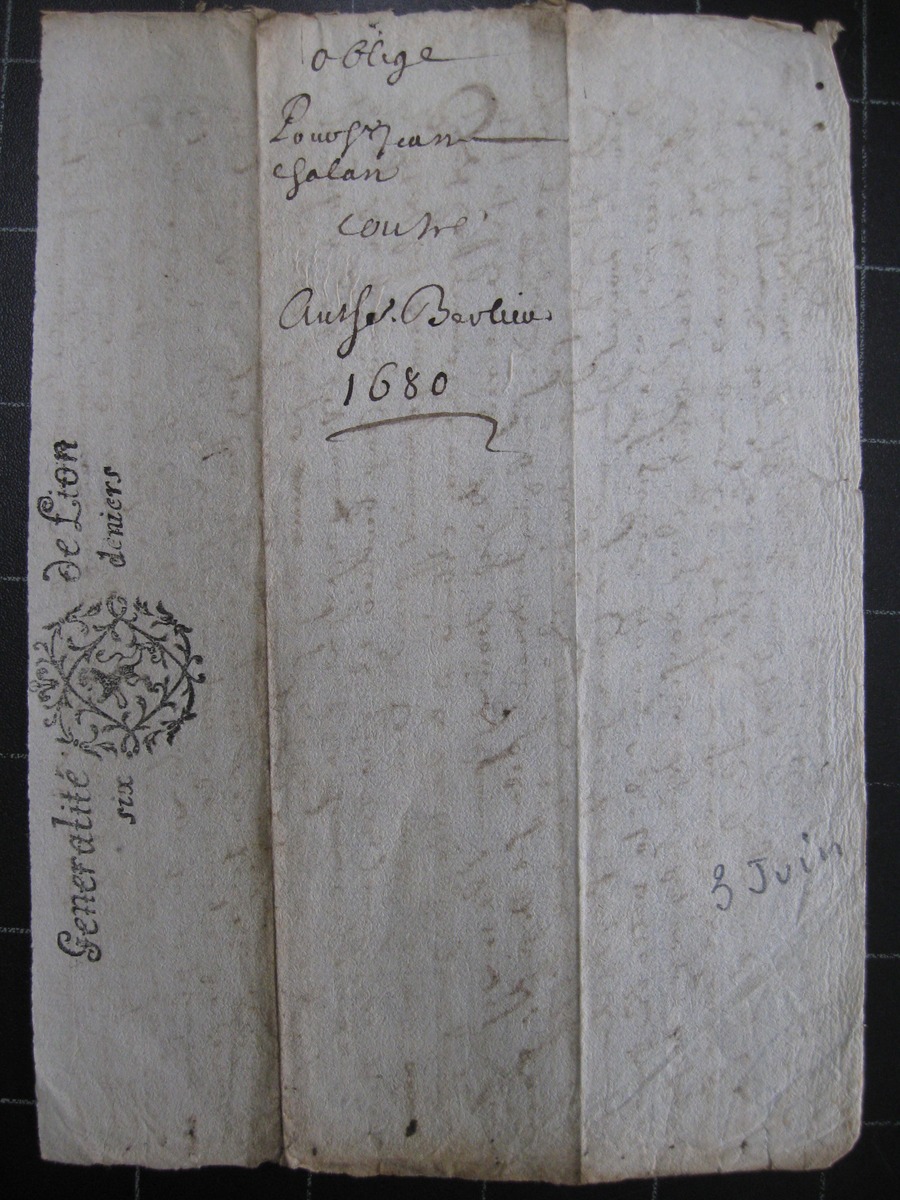 oblige
Pour Sr Jean
chalan
contre
Anthe. Berlier
1680
Generalité de Lion
six deniers
3 Juin